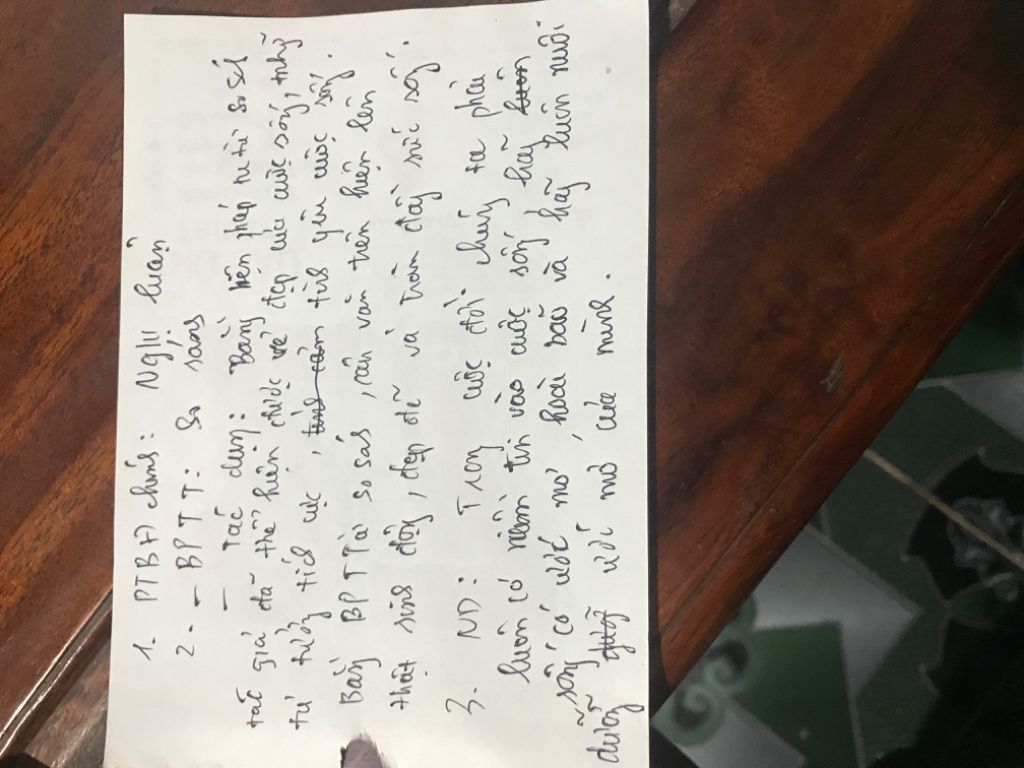 1. PTBĐ chính: Nghị luận
2. - BPTT: So sánh
- Tác dụng: Bằng biện pháp tu từ so sánh
tác giả đã thể hiện được vẻ đẹp của cuộc sống, những
tư tưởng tích cực, tình cảm tình yêu cuộc sống.
Bằng BPTT từ so sánh, câu văn trên hiện lên
thật sinh động, đẹp đẽ và tràn đầy sức sống.
3. ND: Trong cuộc đời chúng ta phải
luôn có niềm tin vào cuộc sống hãy luôn
sống có ước mơ, hoài bão và hãy luôn nuôi
dưỡng ước mơ của mình.